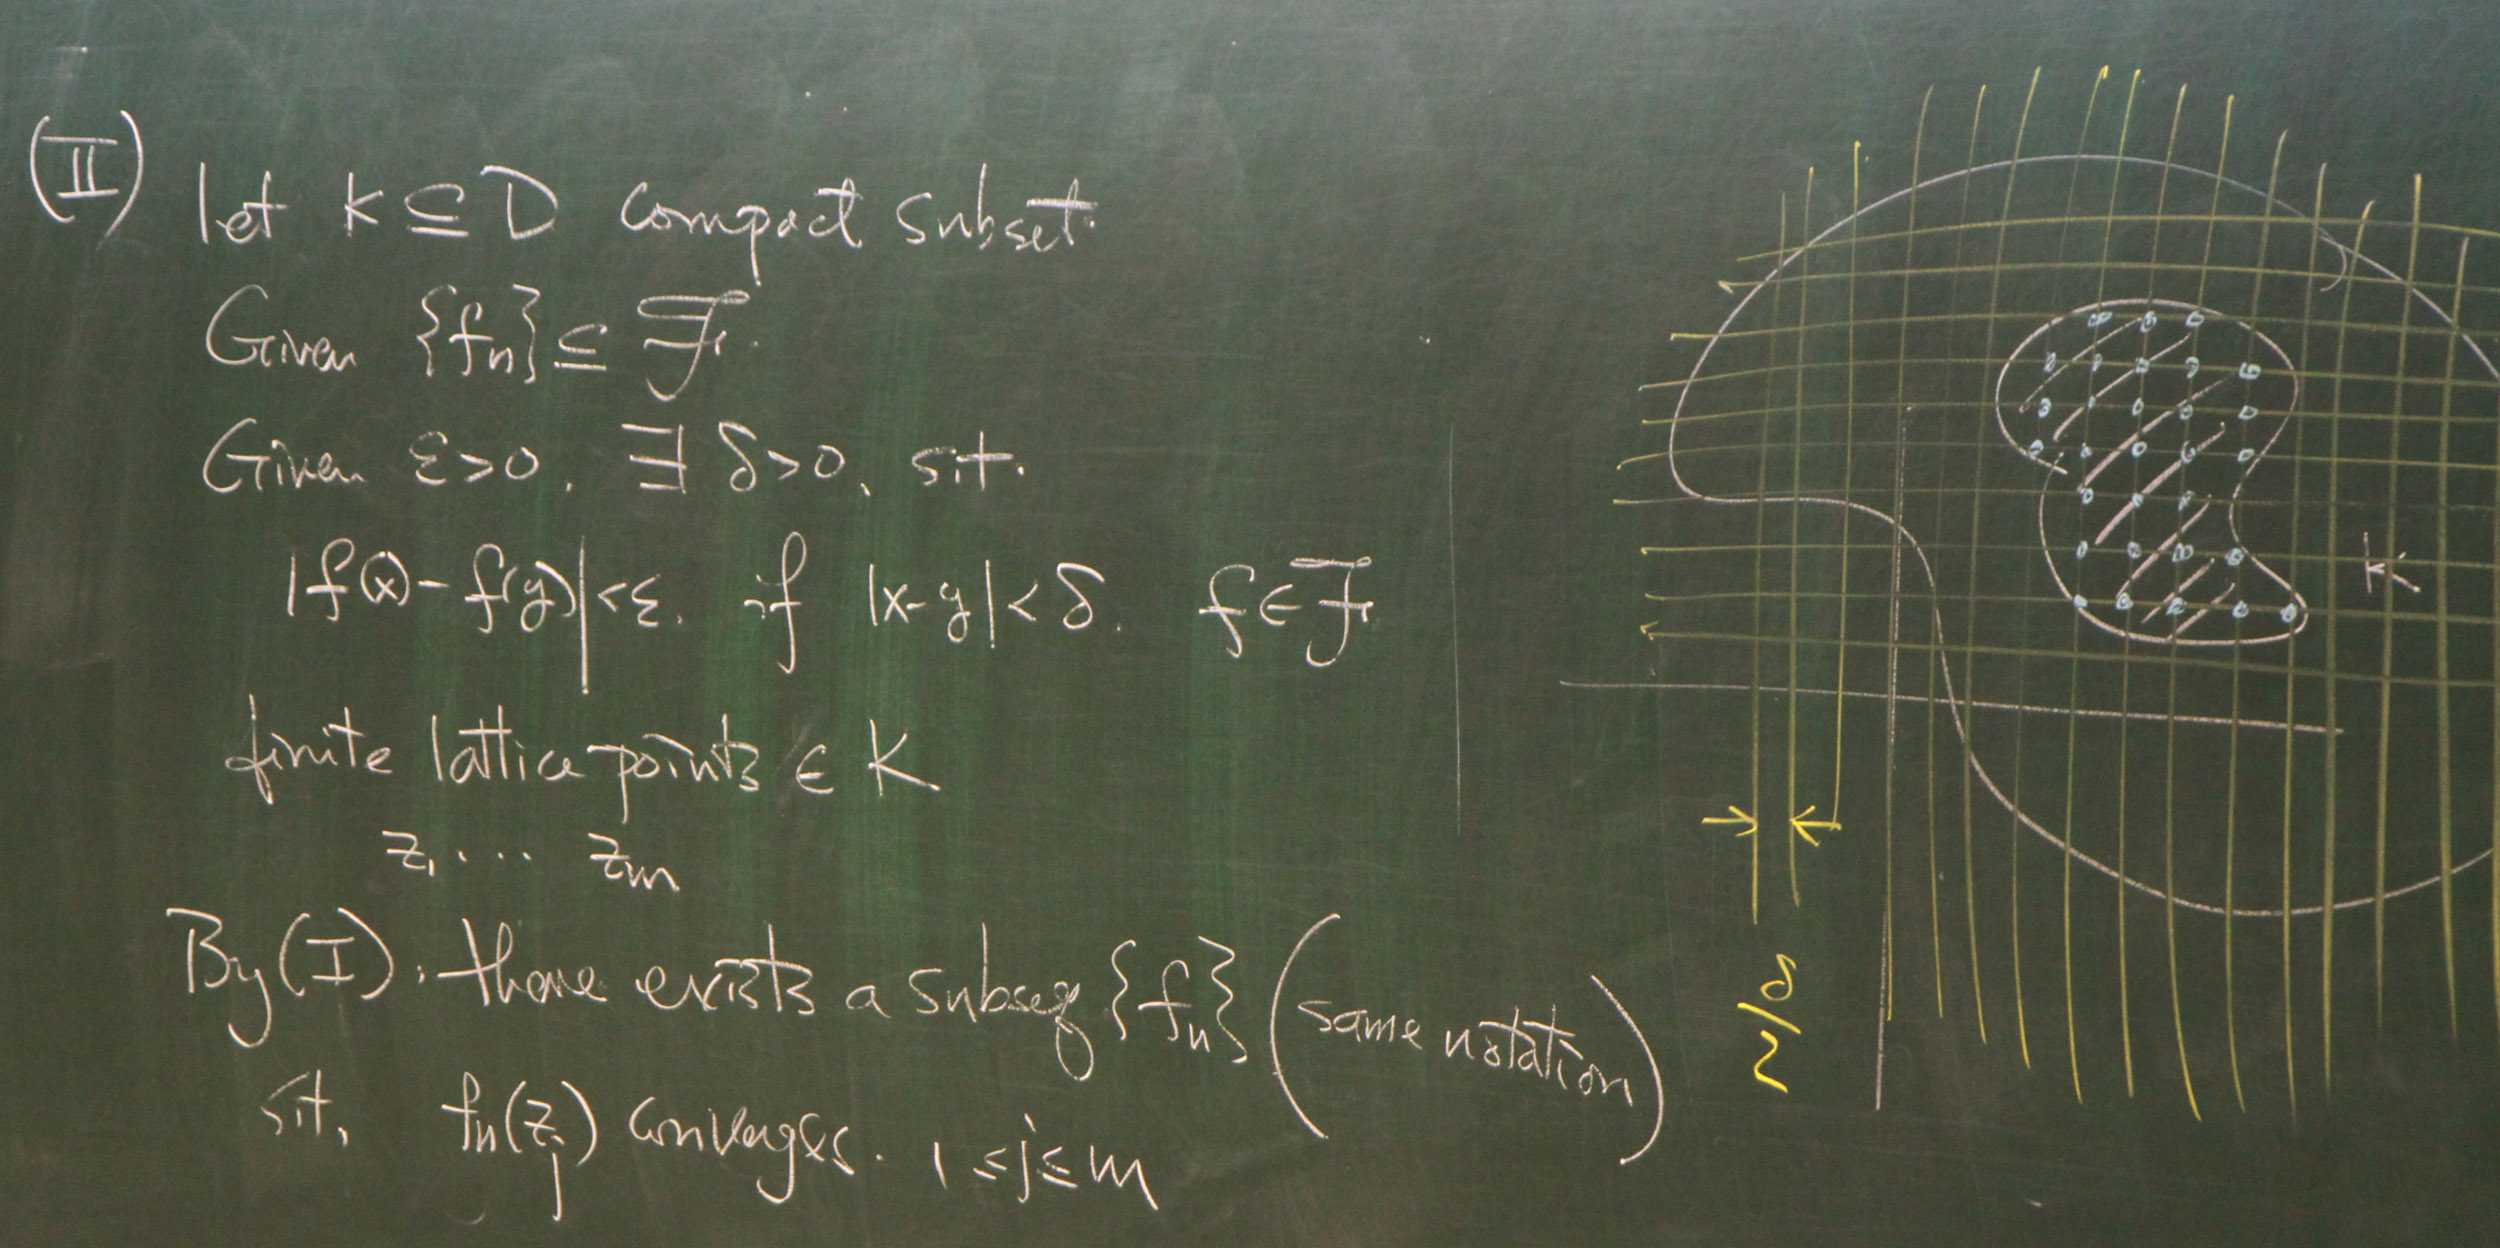 (II) let K ⊆ D compact subset.
Given {fn} ⊆ ℱ.
Given ε>0, ∃ δ>0, s.t.
|f(x) - f(y)| < ε. if |x-y| < δ. f ∈ ℱ.
finite lattice points ∈ K
z1 .... zm
By (I). there exists a subseq {fn} (same notation)
s.t. fn(zj) converges. 1 ≤ j ≤ m
K
δ/2